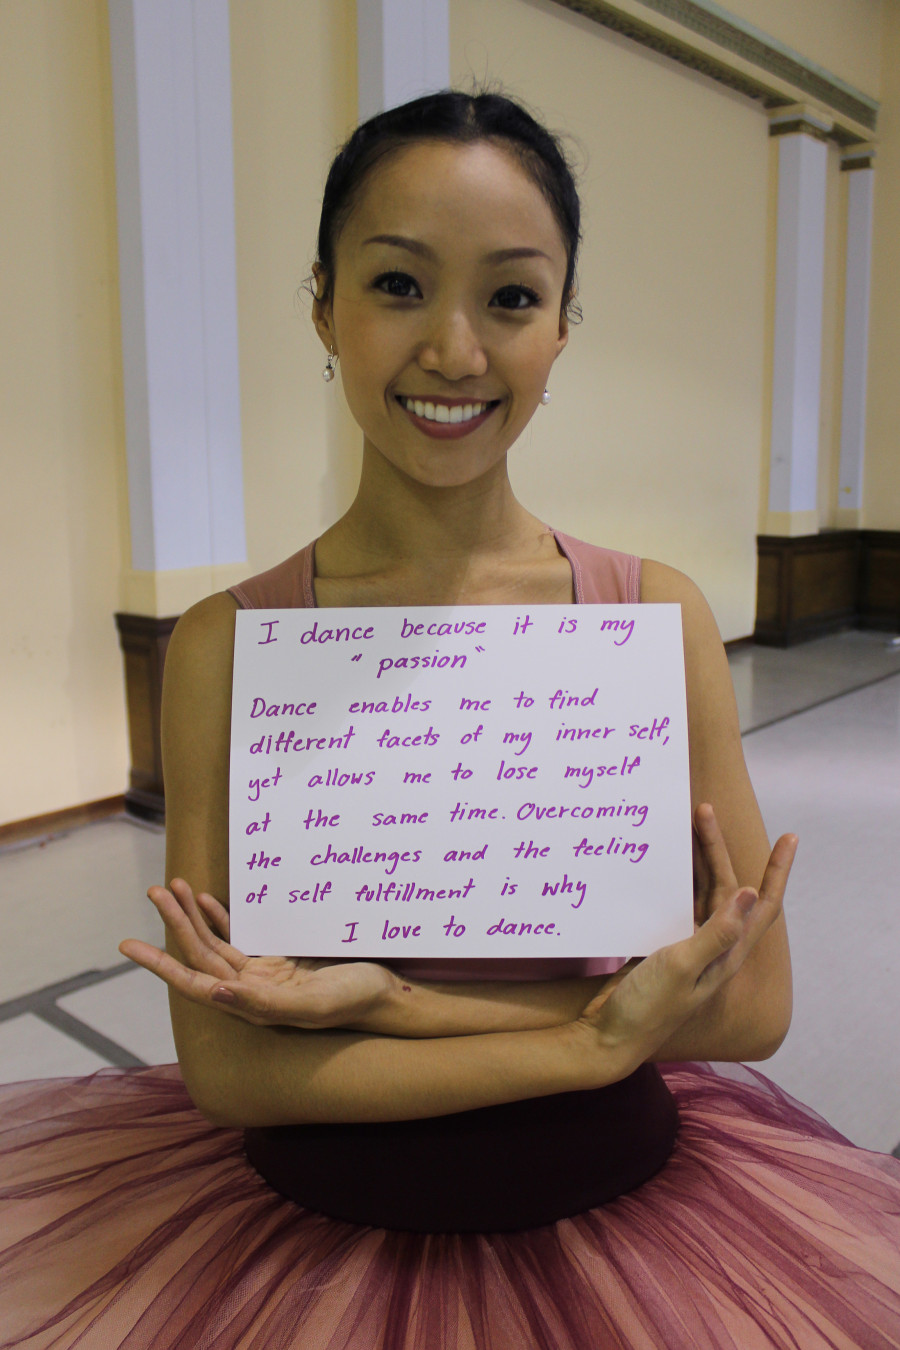 I dance because it is my
"passion"
Dance enables me to find
different facets of my inner self,
yet allows me to lose myself
at the same time. Overcoming
the challenges and the feeling
of self fulfillment is why
I love to dance.